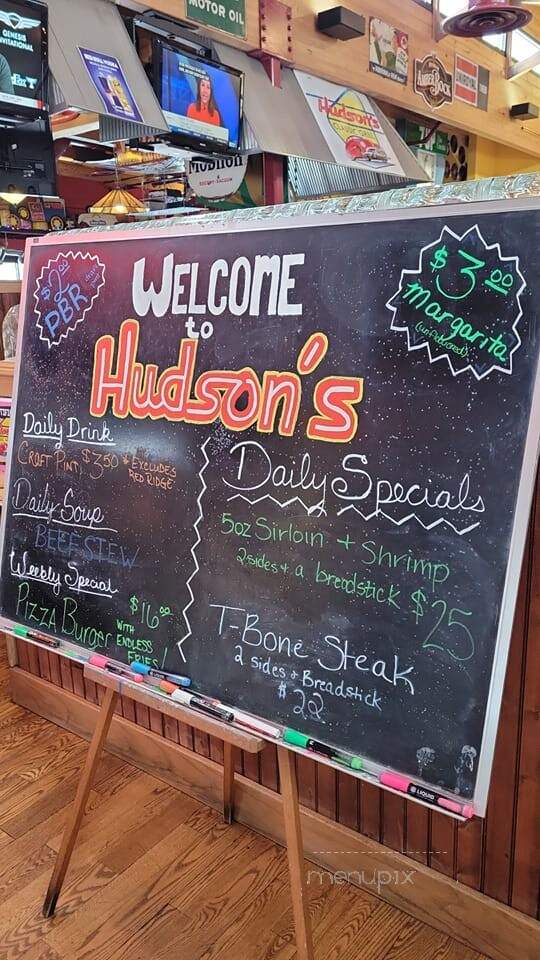 GENESIS
INVITATIONAL
MOTOR OIL
Hudson's
AmberBock
$2.00
PBR
WELCOME
to
Hudson's
$3.00
margarita
(unflavored)
Daily Drink
CRAFT PINT $3.50 * EXCLUDES
RED RIDGE
Daily Soup
BEEF STEW
Weekly Special
Pizza Burger $16.00
WITH
ENDLESS
FRIES!
Daily Specials
5oz Sirloin + Shrimp
2 sides + a breadstick $25
T-Bone Steak
2 sides + Breadstick
$22
LIQUID
menupix